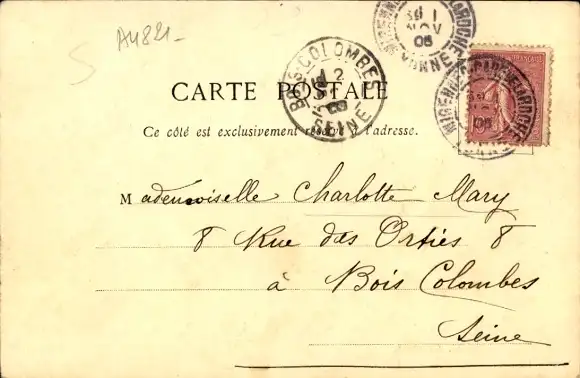 A4821-
MIGENNES LAROCHE
1
NOV
05
YONNE
BOIS-COLOMBES
2
SEINE
CARTE POSTALE
Ce côté est exclusivement réservé à l'adresse.
Mademoiselle Charlotte Mary
8 Rue des Orties 8
à Bois Colombes
Seine